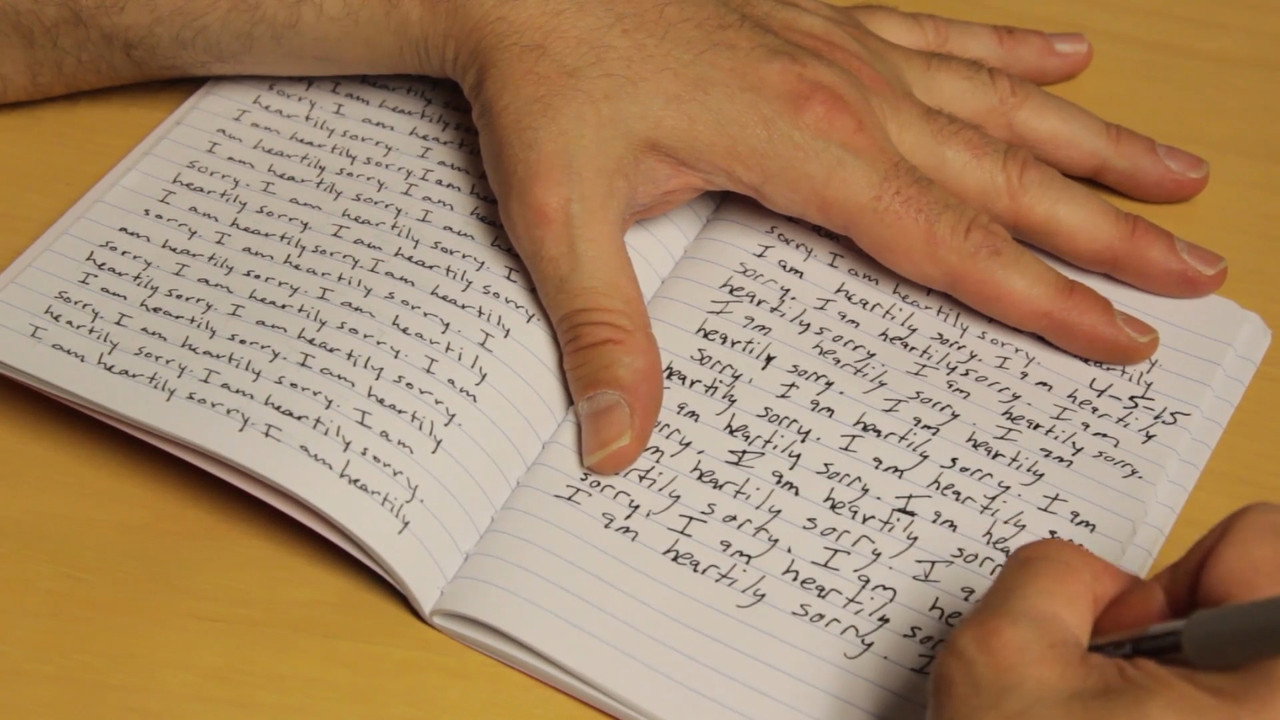 heartily
I am heartily
sorry. I am heartily
heartily sorry. I am
I am heartily sorry. I am
am heartily sorry. I am
I am heartily sorry. I am
sorry. I am heartily sorry. I
heartily sorry. I am heartily sorry.
I am heartily sorry. I am heartily
sorry. I am heartily sorry. I
am heartily sorry. I am heartily
sorry. I am heartily sorry. I am
heartily sorry. I am heartily sorry.
I am heartily sorry. I am heartily
sorry. I am heartily sorry. I am
heartily sorry. I am heartily sorry.
I am heartily sorry. I am heartily
4-5-15
am
sorry. I am heartily sorry. heartily
I am heartily sorry. I am heartily
sorry. I am heartily sorry. I am
heartily sorry. I am heartily sorry.
I am heartily sorry. I am
heartily sorry. I am heartily
sorry. I am heartily sorry. I am
heartily sorry. I am heartily
am heartily sorry. I am
sorry. I am heartily sorry
heartily sorry. I
heartily sorry. I am
sorry. I am heartily
I am heartily sorry. I